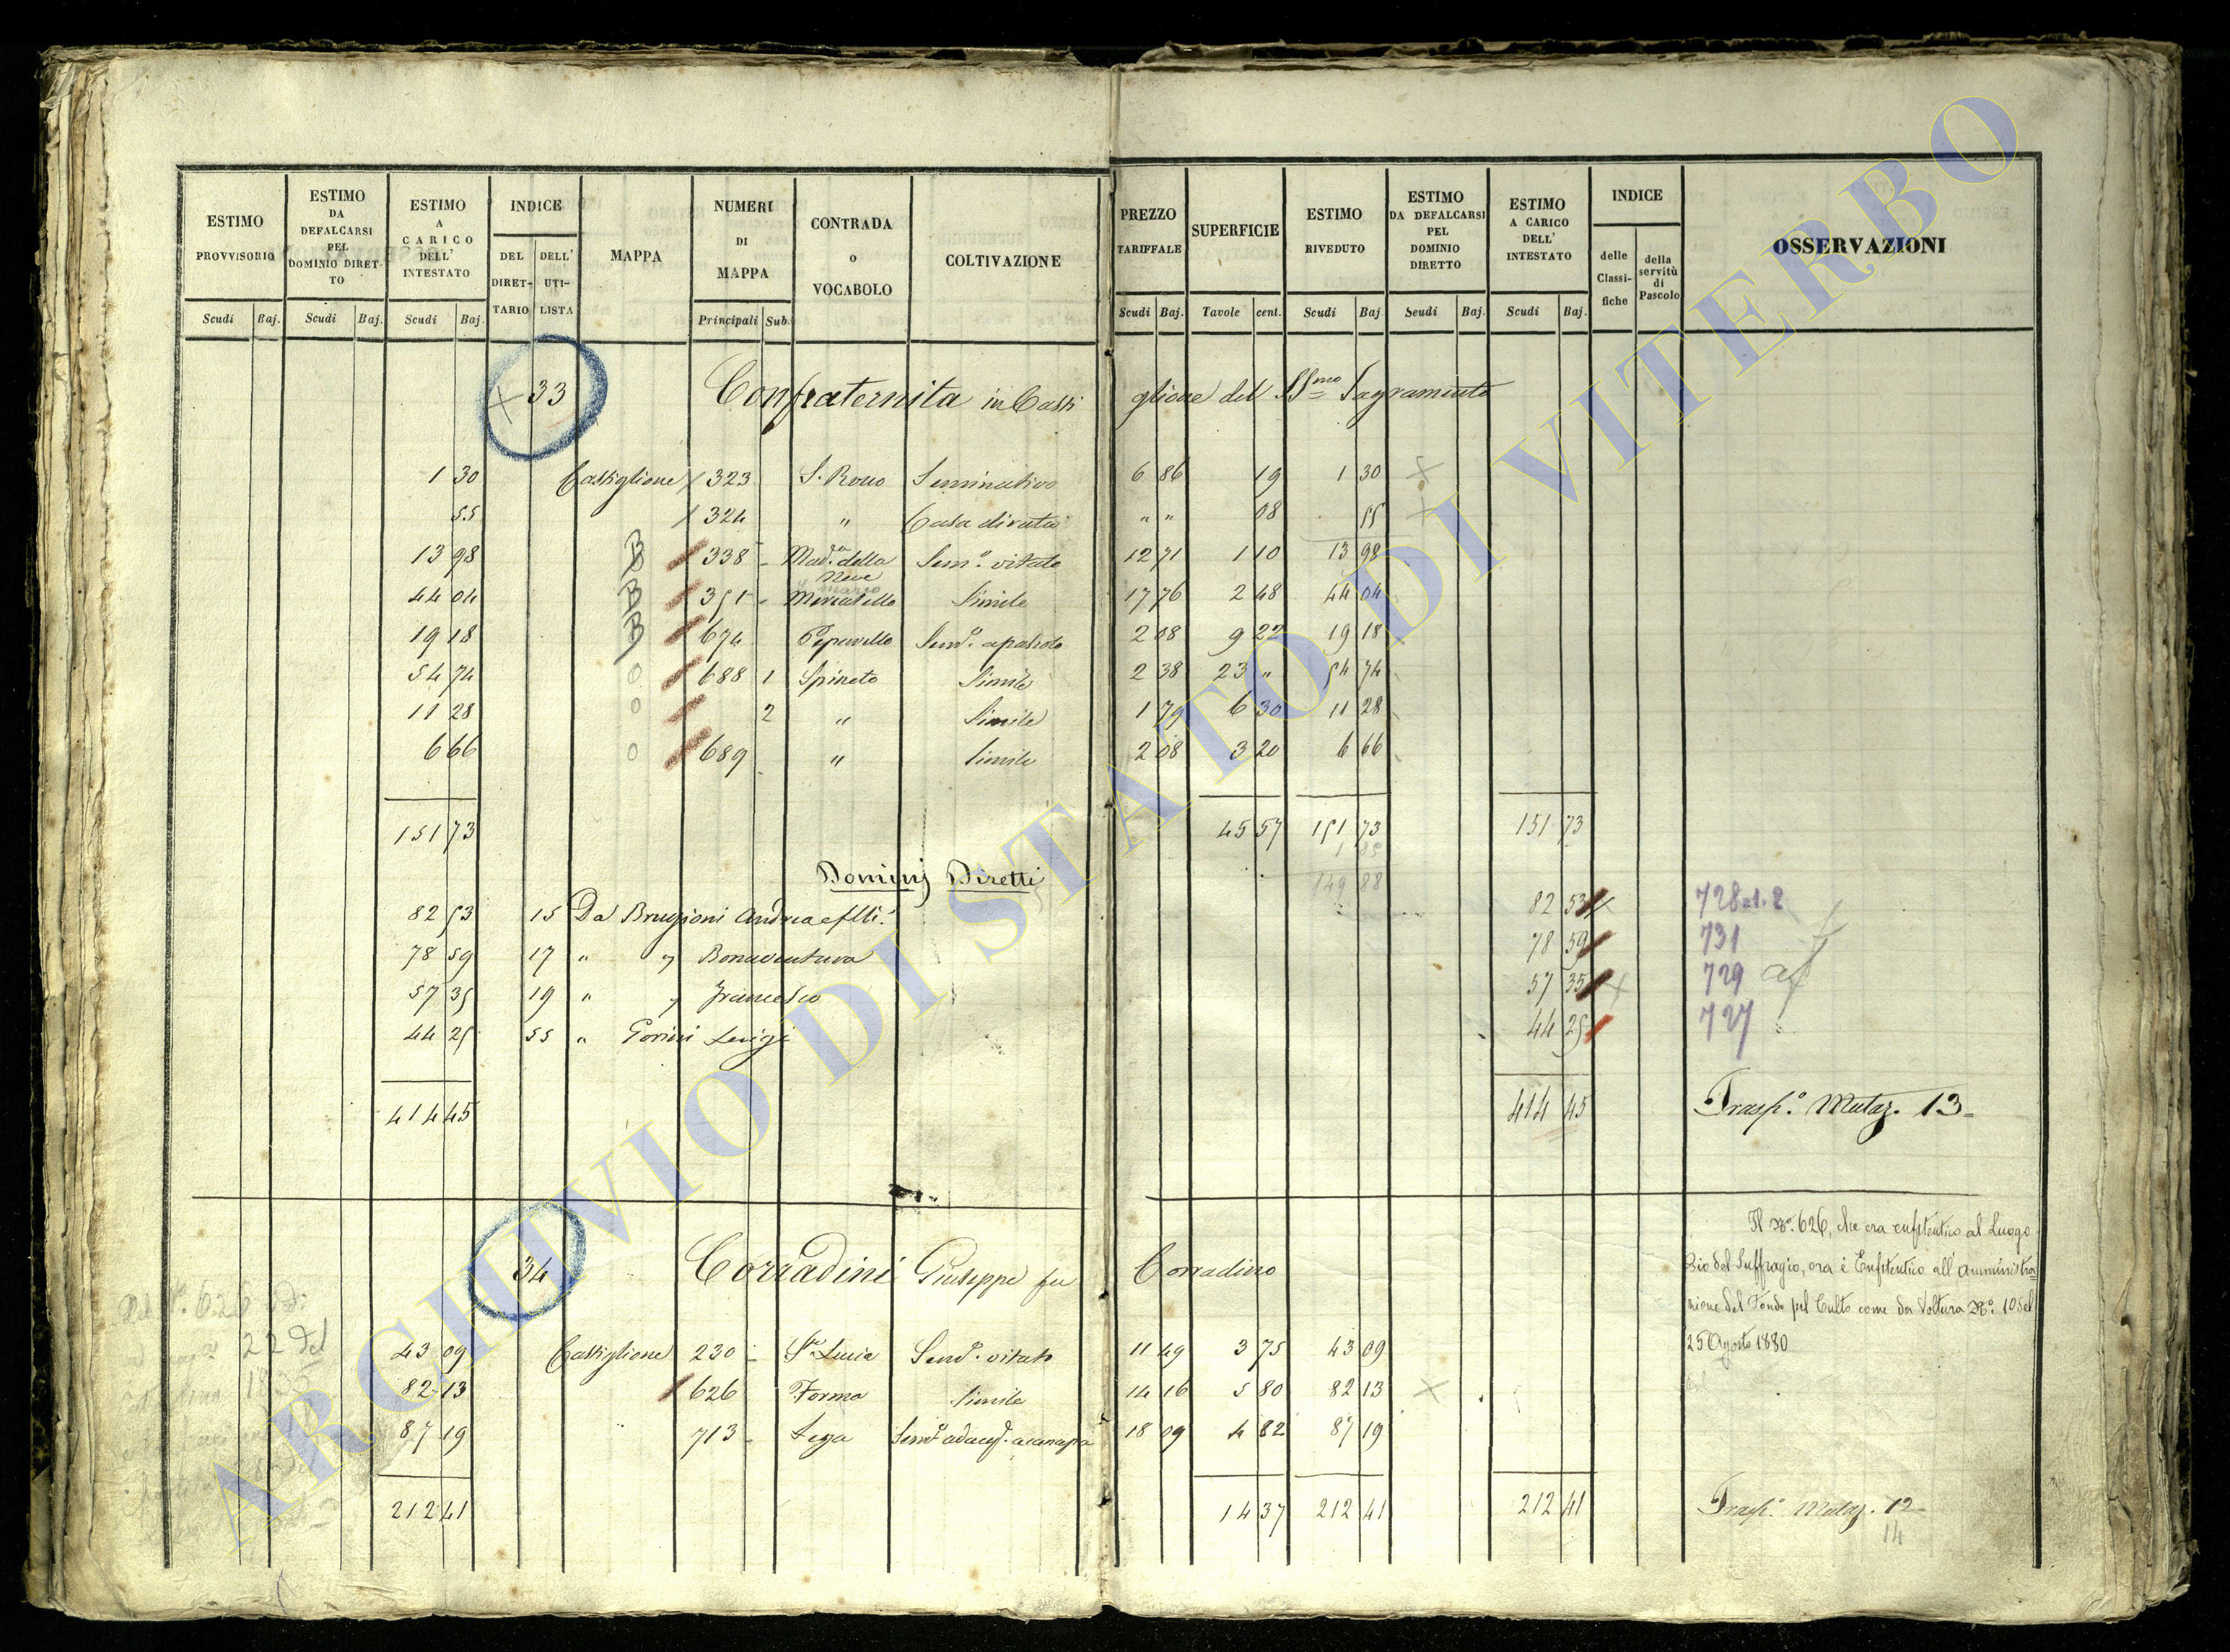 ESTIMO PROVVISORIO | ESTIMO DA DEFALCARSI PEL DOMINIO DIRETTO | ESTIMO A CARICO DELL' INTESTATO | INDICE DEL DIRETTARIO | DELL' UTILISTA | MAPPA | NUMERI DI MAPPA | CONTRADA o VOCABOLO | COLTIVAZIONE | PREZZO TARIFFALE | SUPERFICIE | ESTIMO RIVEDUTO | ESTIMO DA DEFALCARSI PEL DOMINIO DIRETTO | ESTIMO A CARICO DELL' INTESTATO | INDICE delle Classifiche | della servitù di Pascolo | OSSERVAZIONI
Scudi Baj. Scudi Baj. Scudi Baj. Principali Sub. Scudi Baj. Tavole cent. Scudi Baj Scudi Baj. Scudi Baj.
33 Confraternita in Casti glione del SSmo Sagramento
1 30 Castiglione 323 S. Rocco Seminativo 6 86 19 1 30
55 324 " Casa diruta " " 08 55
13 98 B 338 Mad.a della Neve Sem.o vitato 12 71 1 10 13 98
44 04 B 351 Mercatello Simile 17 76 2 48 44 04
19 18 B 674 Sem.o a pascolo 2 08 9 22 19 18
54 74 0 688 1 Spineto Simile 2 38 23 " 54 74
11 28 0 2 " Simile 1 79 6 30 11 28
6 66 0 689 " Simile 2 08 3 20 6 66
151 73 45 57 151 73 151 73
1 85
149 88
Dominj Diretti
82 53 15 Da Brugioni Andrea e flli. 82 53 728 1.2
78 59 17 " " Bonaventura 78 59 731
57 35 19 " " Francesco 57 35 729
44 25 55 " Luigi 44 25 727
414 45 414 45 Trasp.o Mutaz. 13
34 Corradini Giuseppe fu Corradino
Il No. 626, che era enfiteutico al Luogo
Pio del Suffragio, ora è Enfiteutico all'Amministra=
zione del Fondo pel Culto come da Voltura No. 10 del
25 Agosto 1880
43 09 Castiglione 230 Sa Lucia Sem.o vitato 11 49 3 75 43 09
82 13 626 Forma Simile 14 16 5 80 82 13
87 19 713 18 09 4 82 87 19
212 41 14 37 212 41 212 41 Trasp.o Mutaz. 12
14
ARCHIVIO DI STATO DI VITERBO